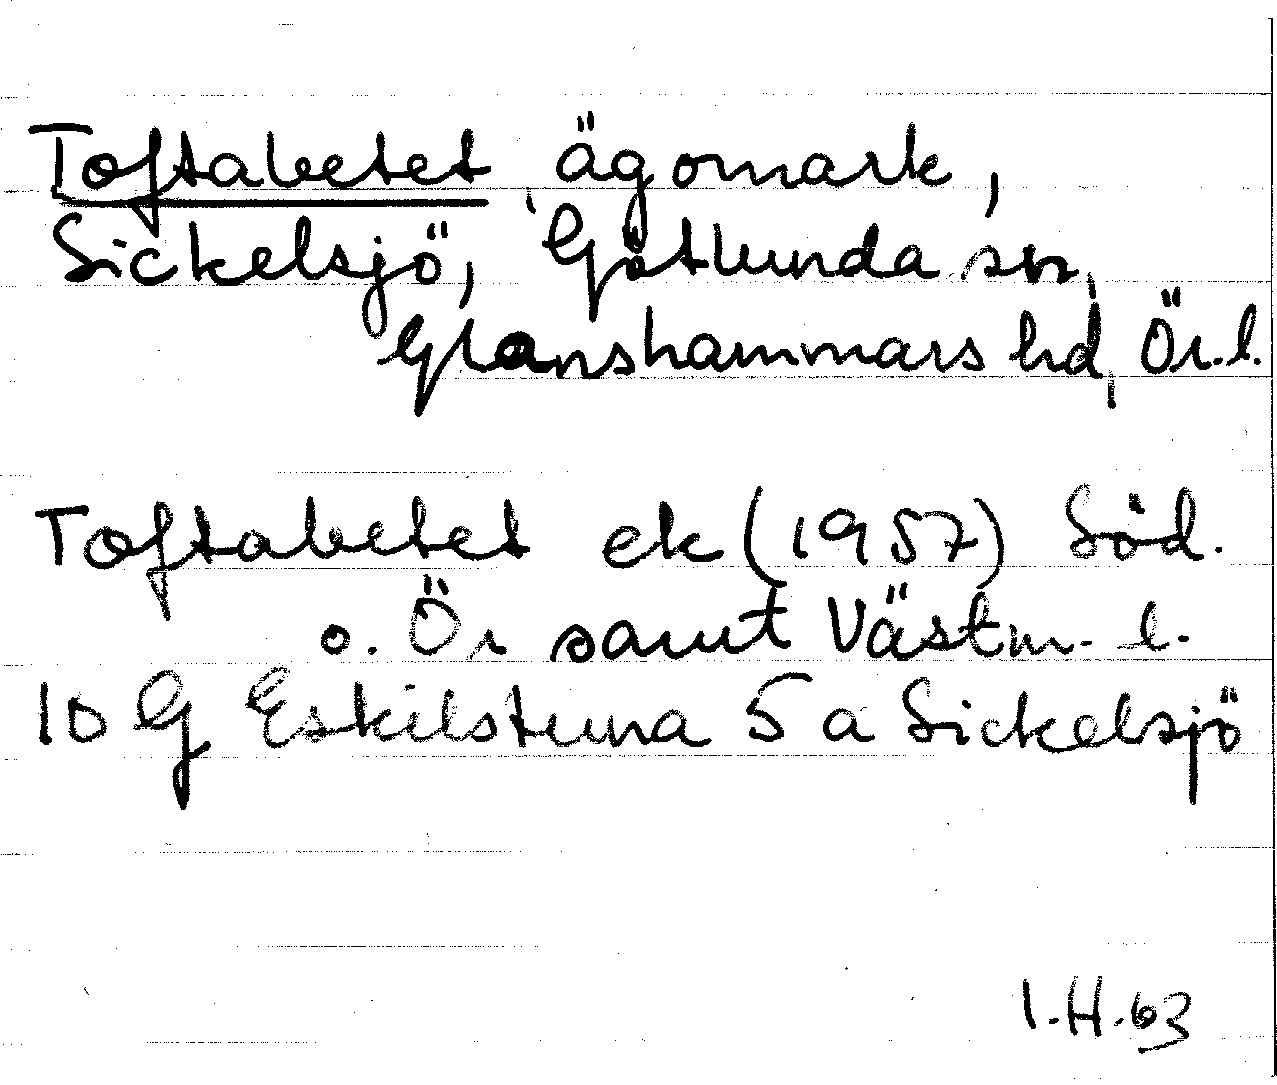 Toftabetet, ägomark,
Sickelsjö, Götlunda sn,
Glanshammars hd, Ör. l.
Toftabetet ek (1957) Söd.
o. Ör samt Västm. l.
10 G Eskilstuna 5 a Sickelsjö
I.H.63